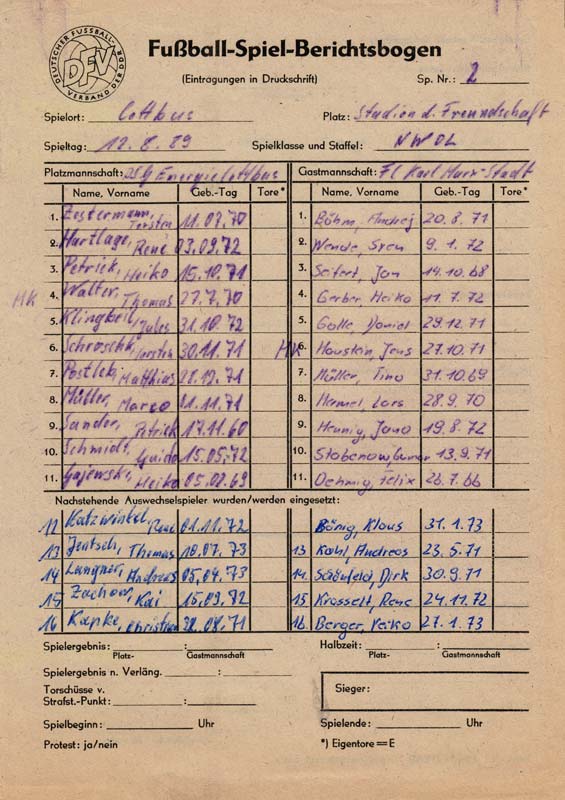 DEUTSCHER FUSSBALL-VERBAND DER DDR
DFV
Fußball-Spiel-Berichtsbogen
(Eintragungen in Druckschrift)
Sp. Nr.: 2
Spielort: Cottbus Platz: Stadion d. Freundschaft
Spieltag: 12.8.89 Spielklasse und Staffel: NWOL
Platzmannschaft: BSG Energie Cottbus Gastmannschaft: FC Karl Marx-Stadt
Name, Vorname Geb.-Tag Tore* Name, Vorname Geb.-Tag Tore*
1. Zestermann, Torsten 11.07.70 1. Böhm, Andrej 20.8.71
2. Hartlage, René 03.09.72 2. Wende, Sven 9.1.72
3. Petrick, Heiko 15.10.71 3. Seifert, Jan 14.10.68
MK 4. Walter, Thomas 27.7.70 4. Gerber, Heiko 11.7.72
5. Klingbeil, Jules 31.10.72 5. Galle, Daniel 29.12.71
6. Schröschk, Torsten 30.11.71 MK 6. Haustein, Jens 27.10.71
7. Matthias 7. Müller, Tino 31.10.69
8. Müller, Marco 8. Hermel, Lars 28.9.70
9. Sander, Petrick 17.11.60 9. Hennig, Jano 19.8.72
10. Schmidt, Guido 15.05.72 10. 13.9.71
11. Gajewski, Heiko 05.02.69 11. Oehmig, Felix
Nachstehende Auswechselspieler wurden/werden eingesetzt:
12 Katzwinkel, René 01.11.72 Bönig, Klaus 31.1.73
13 Jentsch, Thomas 18.07.73 13 Kahl, Andreas 23.5.71
14 Langner, Andreas 05.04.73 14. Schönfeld, Dirk 30.9.71
15 Zachow, Kai 15.09.72 15 Krosselt, Rene 24.11.72
16 Kapke, Christian 08.71 16 Berger, Heiko 27.1.73
Spielergebnis: : Halbzeit: :
Platz- Gastmannschaft Platz- Gastmannschaft
Spielergebnis n. Verläng. :
Torschüsse v.
Strafst.-Punkt: :
Sieger:
Spielbeginn: Uhr Spielende: Uhr
Protest: ja/nein *) Eigentore = E